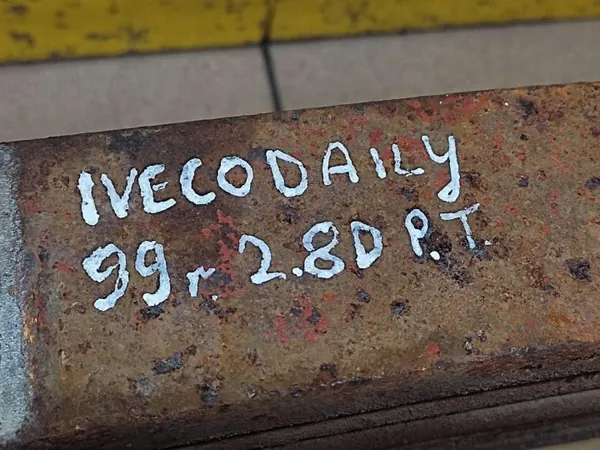 IVECO DAILY
99r. 2.8D P.T.